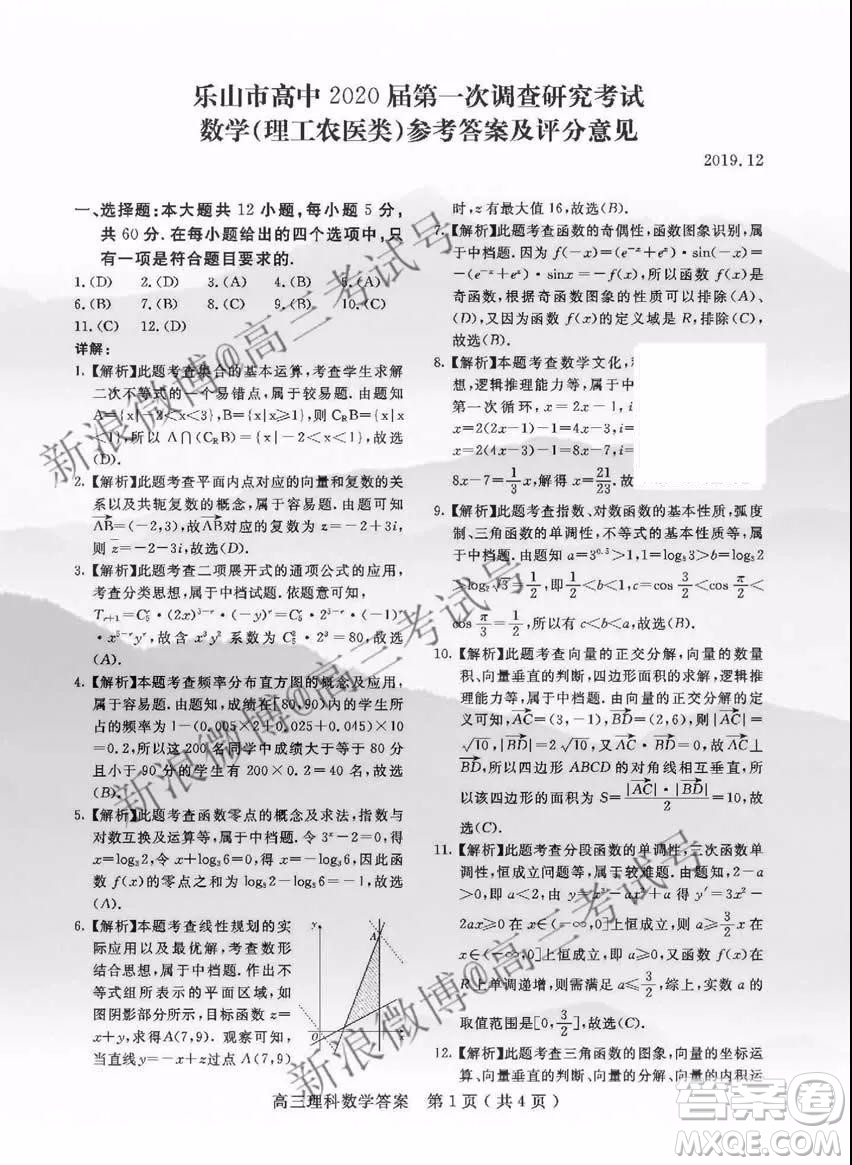 乐山市高中 2020 届第一次调查研究考试
数学(理工农医类)参考答案及评分意见
2019.12
一、选择题:本大题共 12 小题,每小题 5 分,
共 60 分.在每小题给出的四个选项中,只
有一项是符合题目要求的.
1.(D) 2.(D) 3.(A) 4.(B) 5.(A)
6.(B) 7.(B) 8.(C) 9.(B) 10.(C)
11.(C) 12.(D)
详解:
1.【解析】此题考查集合的基本运算,考查学生求解
二次不等式的一个易错点,属于较易题.由题知
A={x|-2<x<3},B={x|x≥1},则 C_RB={x|x
<1},所以 A∩(C_RB)={x|-2<x<1},故选
(D).
2.【解析】此题考查平面内点对应的向量和复数的关
系以及共轭复数的概念,属于容易题.由题意可知
AB=(-2,3),故AB对应的复数为 z=-2+3i,
则 z=-2-3i,故选(D).
3.【解析】此题考查二项展开式的通项公式的应用,
考查分类思想,属于中档试题.依题意,
故含 x³y² 系数为 C₅²·2³=80,故选
(A).
4.【解析】本题考查频率分布直方图的概念及应用,
属于容易题.由题知,成绩在[80,90)内的学生所
占的频率为 1-(0.005×2+0.025+0.045)×10
=0.2,所以这 200 名同学中成绩大于等于 80 分
且小于 90 分的学生有 200×0.2=40 名,故选
(B).
5.【解析】此题考查函数零点的概念及求法,指数与
对数互换及运算等,属于中档题.令 3ˣ-2=0,得
x=log₃2,令
函数 f(x)的零点之和为 log₃2-log₃6=-1,故选
(A).
6.【解析】本题考查线性规划的实
际应用以及最优解,考查数形
结合思想,属于中档题.作出不
等式组所表示的平面区域,如
图阴影部分所示,目标函数 z=
x+y,求得 A(7,9). 观察可知,
当直线 y=-x+z过点 A(7,9)
y
A
O
x
时,z 有最大值 16,故选(B).
7.【解析】此题考查函数的奇偶性,函数图象识别,属
于中档题.因为 f(-x)=(e⁻ˣ+eˣ)·sin(-x)=
-(e⁻ˣ+eˣ)·sinx=-f(x),所以函数 f(x)是
奇函数,根据奇函数图象的性质可以排除(A)、
(D),又因为函数 f(x)的定义域是 R,排除(C),
故选(B).
8.【解析】本题考查数学文化,
想,逻辑推理能力等,属于中档题.
第一次循环,x=2x-1,i=
x=2(2x-1)-1=4x-3,i=
x=2(4x-3)-1=8x-7,i=
8x-7=1/3x,解得 x=21/23.故选(C).
9.【解析】此题考查指数、对数函数的基本性质,弧度
制、三角函数的单调性,不等式的基本性质等,属
于中档题.由题知 a=3^0.5>1,1=log₃3>log₃2
>log₃√3=1/2,即1/2<b<1,c=cos 3/2<cos π/2
<cos π/3=1/2,所以有 c<b<a,故选(B).
10.【解析】此题考查向量的正交分解,向量的数量
积、向量垂直的判断,四边形面积的求解,逻辑推
理能力等,属于中档题.由向量的正交分解的定
义可知,AC=(3,-1),BD=(2,6),则|AC|=
√10,|BD|=2√10,又AC·BD=0,故AC⊥
BD,所以四边形 ABCD 的对角线相互垂直,所
以该四边形的面积为 S=|AC|·|BD|/2=10,故
选(C).
11.【解析】此题考查分段函数的单调性,三次函数单
调性,恒成立问题等,属于中档题.由题知,2-a
>0,所以 a<2,由 y=x³-ax²+a 得 y′=3x²-
2ax≥0在 x∈(-∞,0]上恒成立,则 a≥3/2x在
x∈(-∞,0]上恒成立,即 a≥0,又函数 f(x)在
R 上单调递增,则
取值范围是[0,3/2],故选(C).
12.【解析】此题考查三角函数的图象,向量的坐标运
算、三角恒等变换、函数的值域、向量的内积运
高三理科数学答案 第 1 页(共 4 页)
新浪微博@高三考试号
新浪微博@高三考试号
新浪微博@高三考试号
答案圈
MXQE.COM